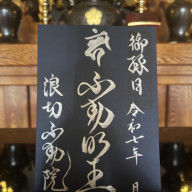 御縁日 令和七年 月
不動明王
浪切不動院